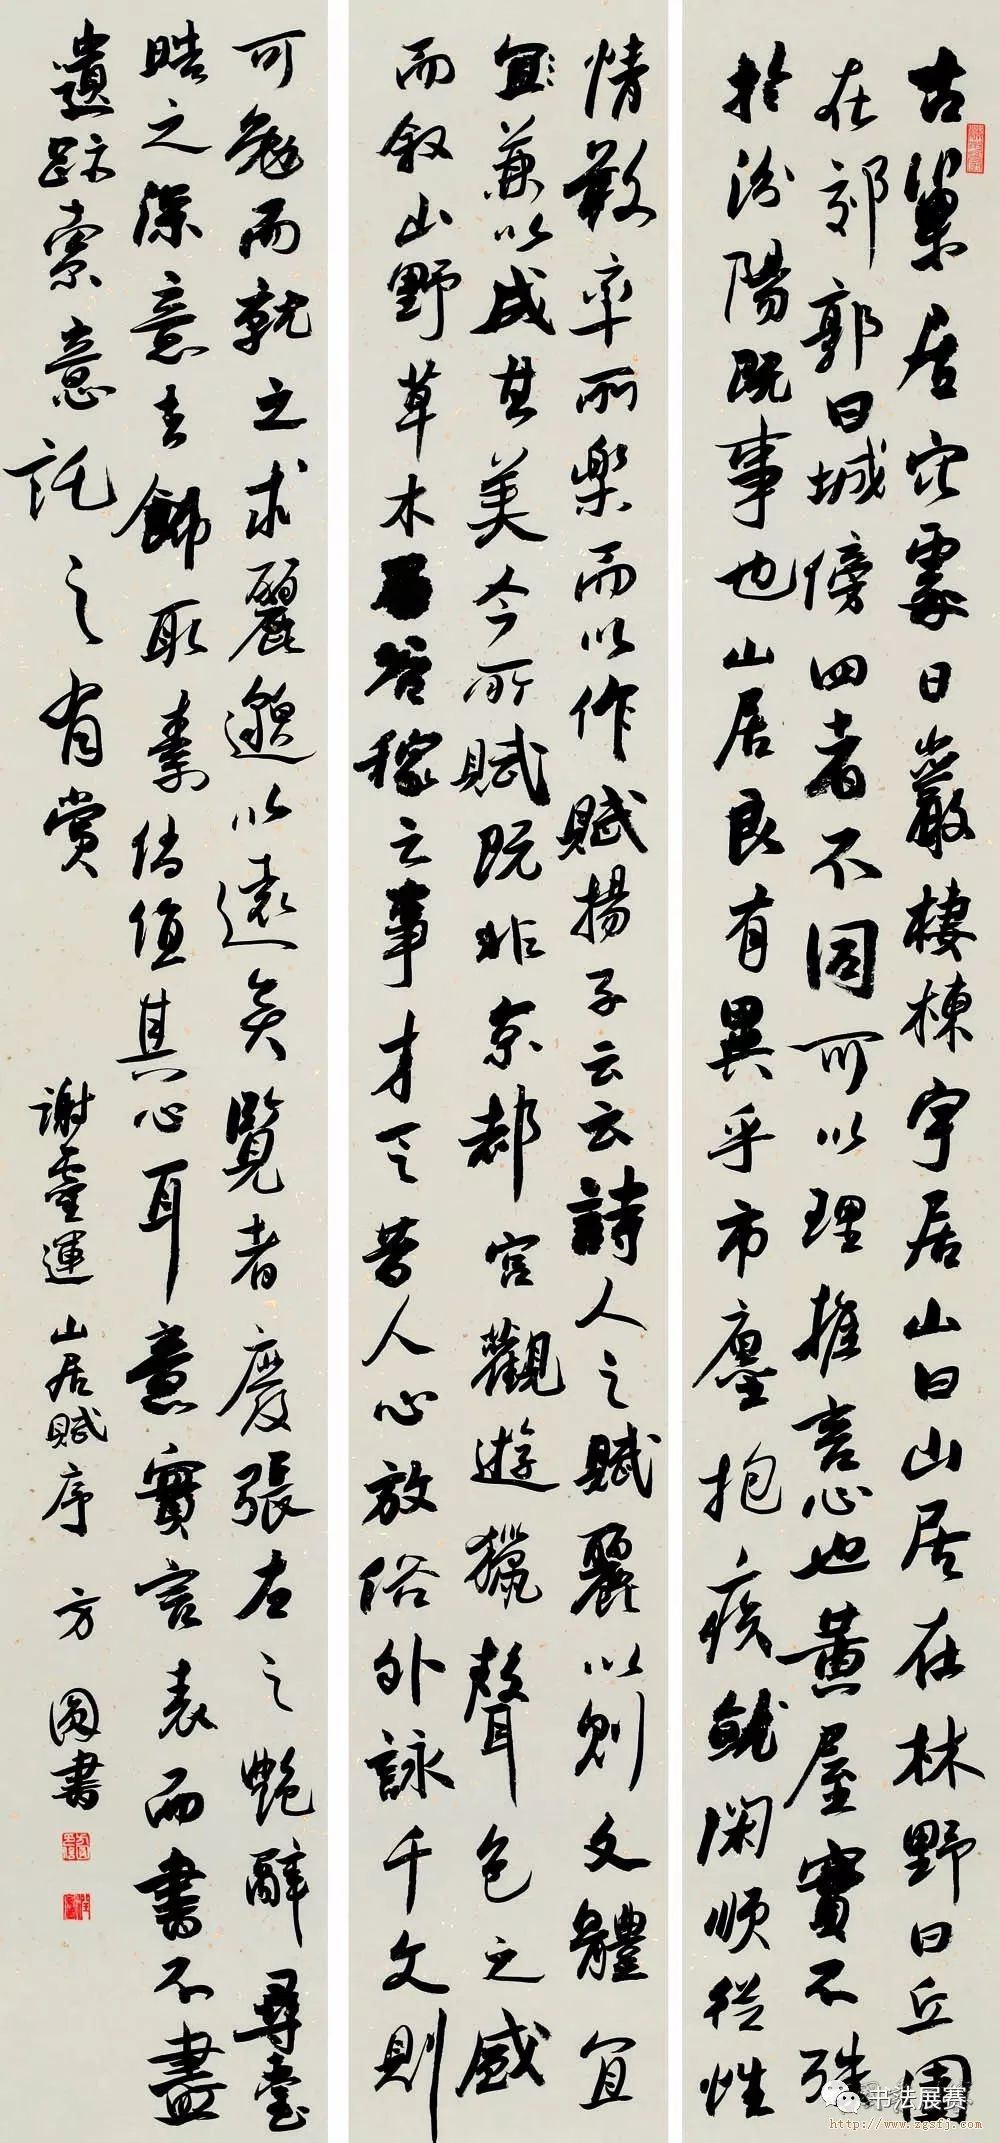 古巢居穴處曰巖棲棟宇居山曰山居在林野曰丘園
在郊郭曰城傍四者不同可以理推言心也黃屋實不殊
於汾陽既事也山居良有異乎市廛抱疾就閑順從性
情敢率所樂而以作賦揚子云云詩人之賦麗以則文體宜
宜兼以成其美今所賦既非京都宮觀遊獵聲色之盛
而敘山野草木谷稼之事才乏昔人心放俗外詠于文則
可勉而就之求麗邈以遠矣覽者廢張左之艷辭尋臺
皓之深意去飾取素儻值其心耳意實言表而書不盡
遺跡索意託之有賞
謝靈運山居賦序 方圓書
书法展赛
http://www.zgsfj.com